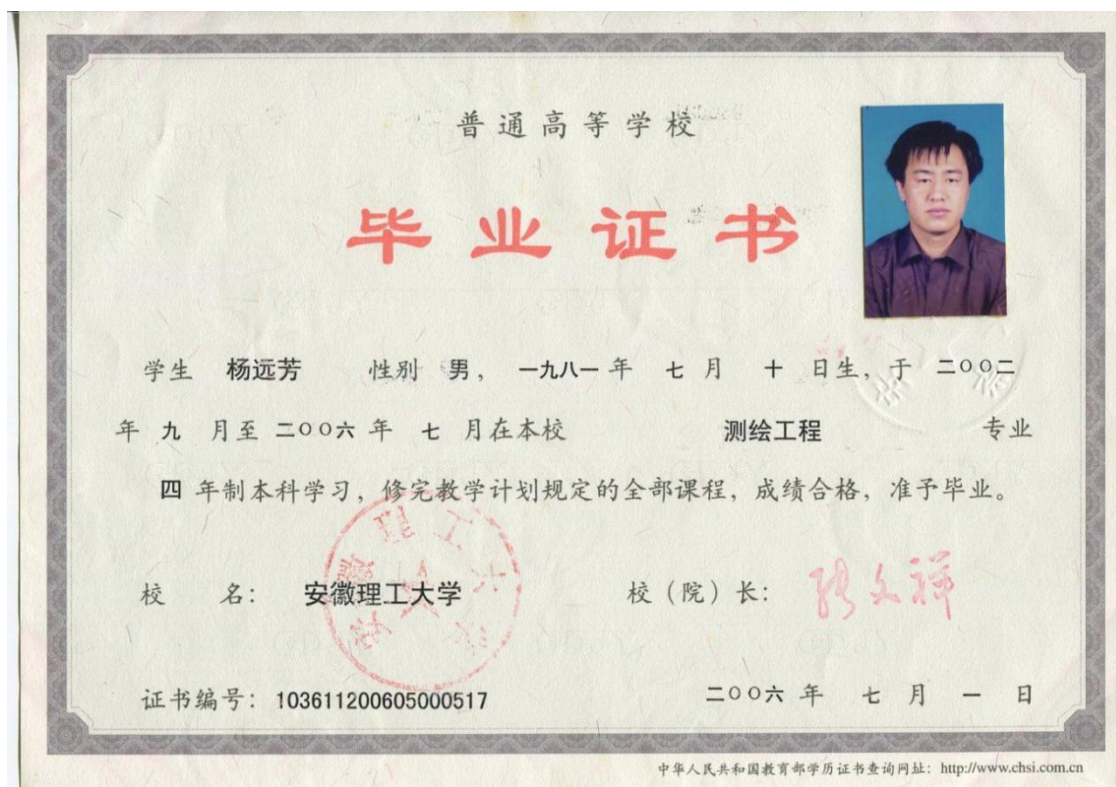 普通高等学校
毕业证书
学生 杨远芳 性别 男，一九八一年 七 月 十 日生，于 二〇〇二
年 九 月至 二〇〇六 年 七 月在本校 测绘工程 专业
四 年制本科学习，修完教学计划规定的全部课程，成绩合格，准予毕业。
校 名： 安徽理工大学 校（院）长：
安徽理工大学
证书编号：103611200605000517 二〇〇六 年 七 月 一 日
中华人民共和国教育部学历证书查询网址：http://www.chsi.com.cn